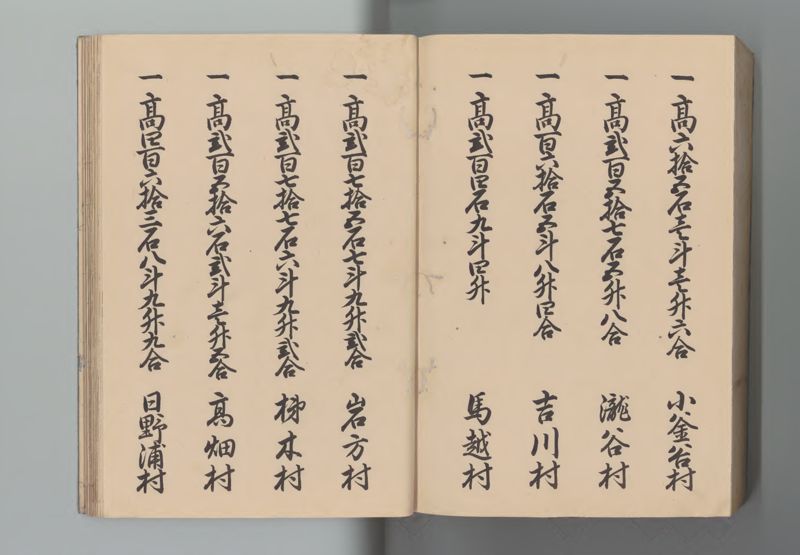 一高六拾五石壱斗壱升六合 小釜谷村
一高弐百五拾七石五升八合 瀧谷村
一高百六拾石五斗八升四合 吉川村
一高弐百四石九斗四升 馬越村
一高弐百七拾五石七斗九升弐合 岩方村
一高弐百七拾七石六斗九升弐合 梯木村
一高弐百五拾六石弐斗壱升五合 高畑村
一高四百六拾三石八斗九升九合 日野浦村